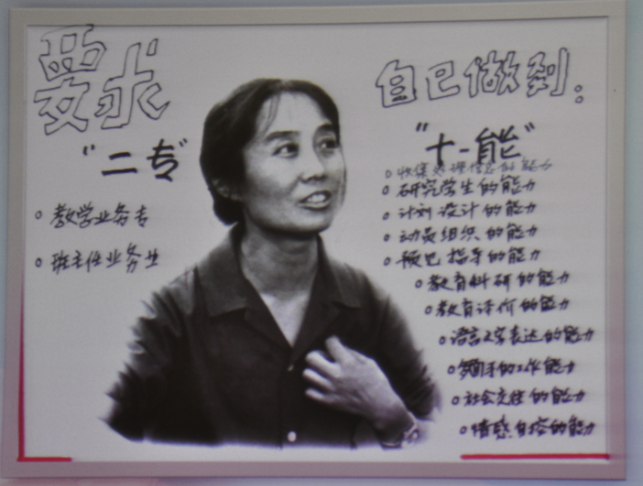 要求
"二专"
教学业务专
班主任业务专
自己做到:
"十一能"
收集处理信息的能力
研究学生的能力
计划设计的能力
动员组织的能力
预见指导的能力
教育科研的能力
教育评价的能力
语言文字表达的能力
的工作能力
社会交往的能力
情感自控的能力